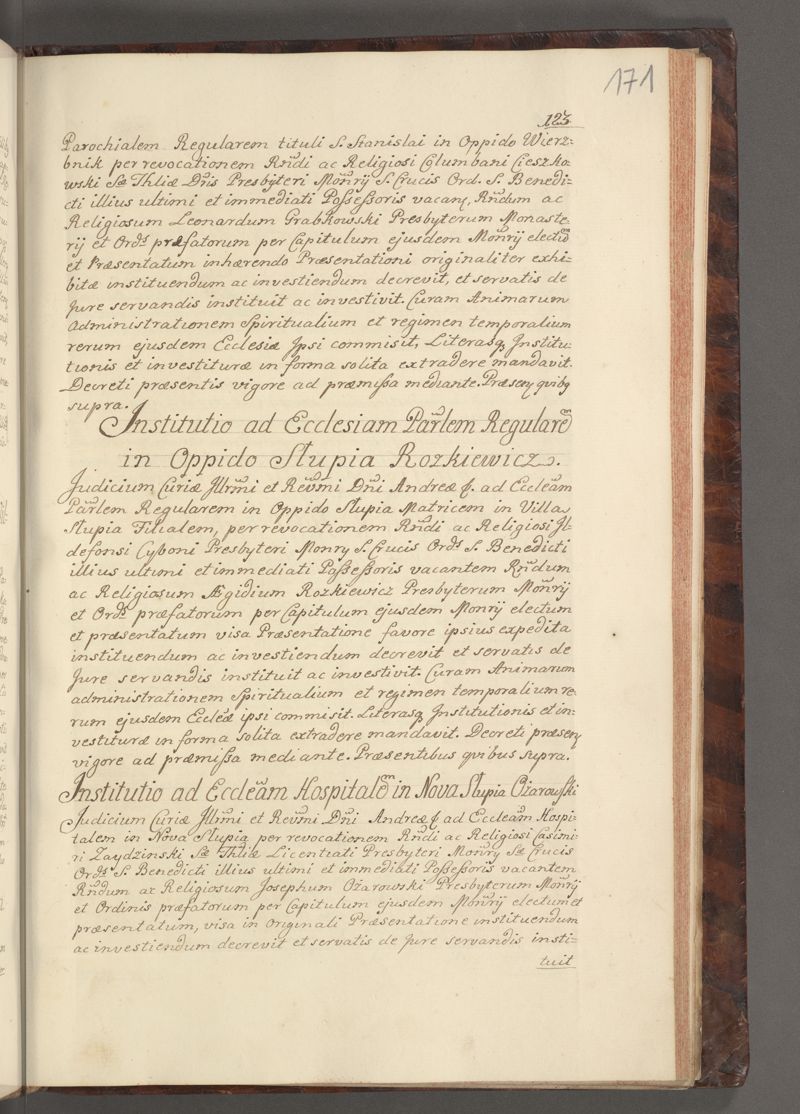 171
123
Parochialem Regularem tituli S. Stanislai in Oppido Wierz=
bnik per revocationem Rñdi ac Religiosi Columbani Cieszko
wski Sæ Thliæ Dñis Presbÿteri Moñrÿ S. Crucis Ord. S. Benedi=
cti illius ultimi et immediati Possessoris vacanţ, Rñdum ac
Religiosum Leonardum Grabkowski Presbyterum Monaste
rij et Ords præfatorum per Capitulum ejusdem Moñrij electũ
et Præsentatum inhærendo Præsentationi originaliter exhi=
bitæ instituendum ac investiendum decrevit, et servatis de
Jure servandis instituit ac investivit. Curam Animarum
administrationem Spiritualium et regimen temporalium
rerum ejusdem Ecclesiæ Ipsi commisit, Literasq Institu=
tionis et investituræ in forma solita extradere mandavit.
Decreti præsentis vigore ad præmissa mediante. Præsenţ qvibq
supra.
Institutio ad Ecclesiam Pãrlem Regularẽ
in Oppido Słupia Rozkiewicz.
Judicium Curiæ Jllrmi et Reṽmi Dñi Andreæ &. ad Eccleãm
Pãrlem Regularem in Oppido Słupia Matricem in Villa
Słupia Filialem, per revocationem Rñdi ac Religiosi Jl=
defonsi Cyboni Presbÿteri Monry S. Crucis Ords S. Benedicti
illius ultimi et immediati Possessoris vacantem Rñdum
ac Religiosum Ægidium Rozkiewicz Presbyterum Moñrij
et Ords præfatorum per Capitulum ejusdem Monrij electum
et præsentatum visa Præsentatione favore ipsius expedita
instituendum ac investiendum decrevit et servatis de
Jure servandis instituit ac investivit. Curam Animarum
administrationem Spiritualium et regimen temporalium re
rum ejusdem Eccleæ ipsi commisit. Literasq Institutionis et in=
vestituræ in forma solita extradere mandavit. Decreti præsenţ
vigore ad præmissa mediante. Præsentibus qvibus supra.
Institutio ad Eccleãm Hospitalẽ in Nova Słupia Ożarowski
Judicium Curiæ Jllrmi et Reṽmi Dñi Andreæ & ad Eccleãm Hospi=
talem in Nova Słupia per revocationem Rñdi ac Religiosi Casimi=
ri Zaydzinski Sæ Thliæ Licentiati Presbyteri Moñry Sæ Crucis
Ords S. Benedicti illius ultimi et immediati Possessoris vacantem
Rñdum ac Religiosum Josephum Ożarowski Presbyterum Moñrij
et Ordinis præfatorum per Capitulum ejusdem Moñrij electum et
præsentatum, visa in Originali Præsentatione instituendum
ac investiendum decrevit et servatis de Jure servandis insti=
tuit